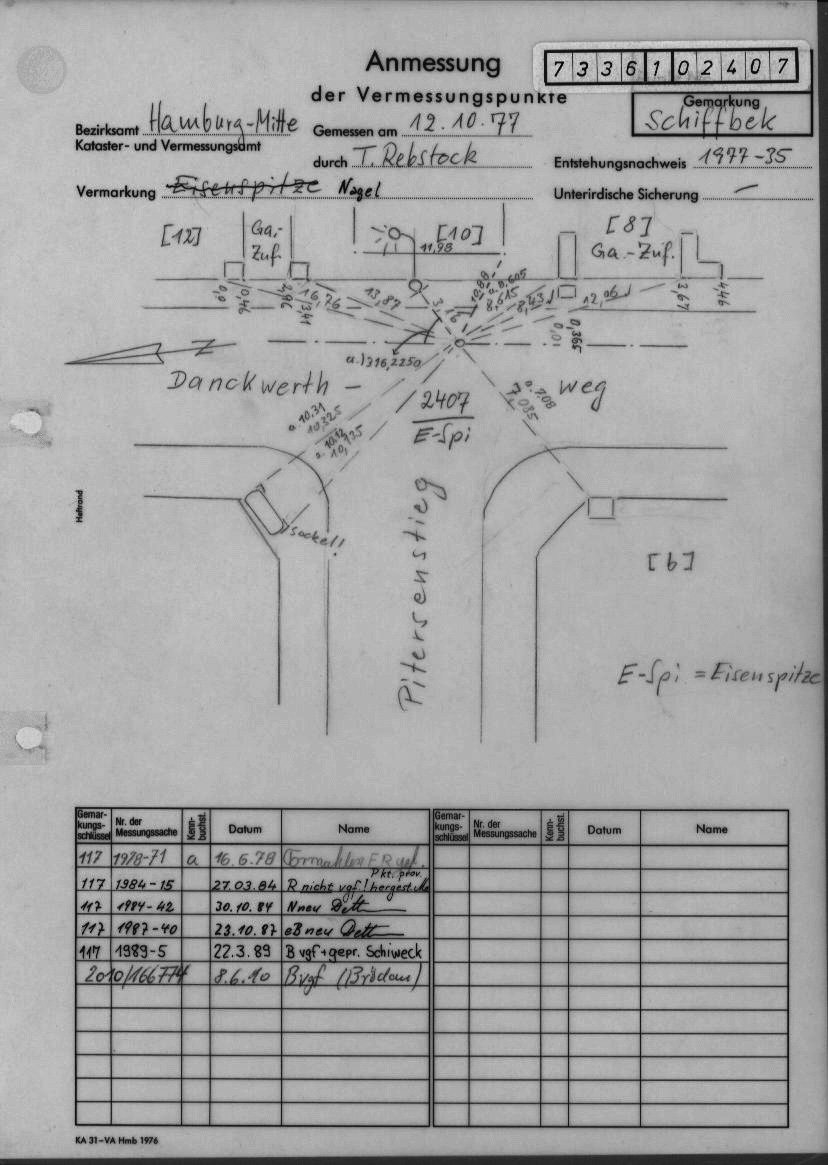 Anmessung
7 3 3 6 1 0 2 4 0 7
der Vermessungspunkte
Gemarkung
Schiffbek
Bezirksamt Hamburg-Mitte
Gemessen am 12.10.77
Kataster- und Vermessungsamt
durch T. Rebstock
Entstehungsnachweis 1977-35
Vermarkung Eisenspitze Nagel
Unterirdische Sicherung —
[12]
Ga.-
Zuf.
[10]
[8]
Ga.-Zuf.
11,98
0,46
16,76
13,87
8,615
12,06
3,67
4,46
0,01
0,365
a.)316,2250
N
Danckwerth - weg
a. 10.31
10,325
10,135
a. 7.08
7,085
2407
E-Spi
Pitersenstieg
Sockel!
[6]
E-Spi = Eisenspitze
Heftrand
Gemar-
kungs-
schlüssel
Nr. der
Messungssache
Kenn-
buchst.
Datum
Name
Gemar-
kungs-
schlüssel
Nr. der
Messungssache
Kenn-
buchst.
Datum
Name
117 1978-71 a 16.6.78
Pkt. prov.
117 1984-15 27.03.84 R nicht vgf! hergest.
117 1984-42 30.10.84 N neu Dett
117 1987-40 23.10.87 eB neu Dett
117 1989-5 22.3.89 B vgf + gepr. Schiweck
2010/166774 8.6.10 B vgf
KA 31-VA Hmb 1976